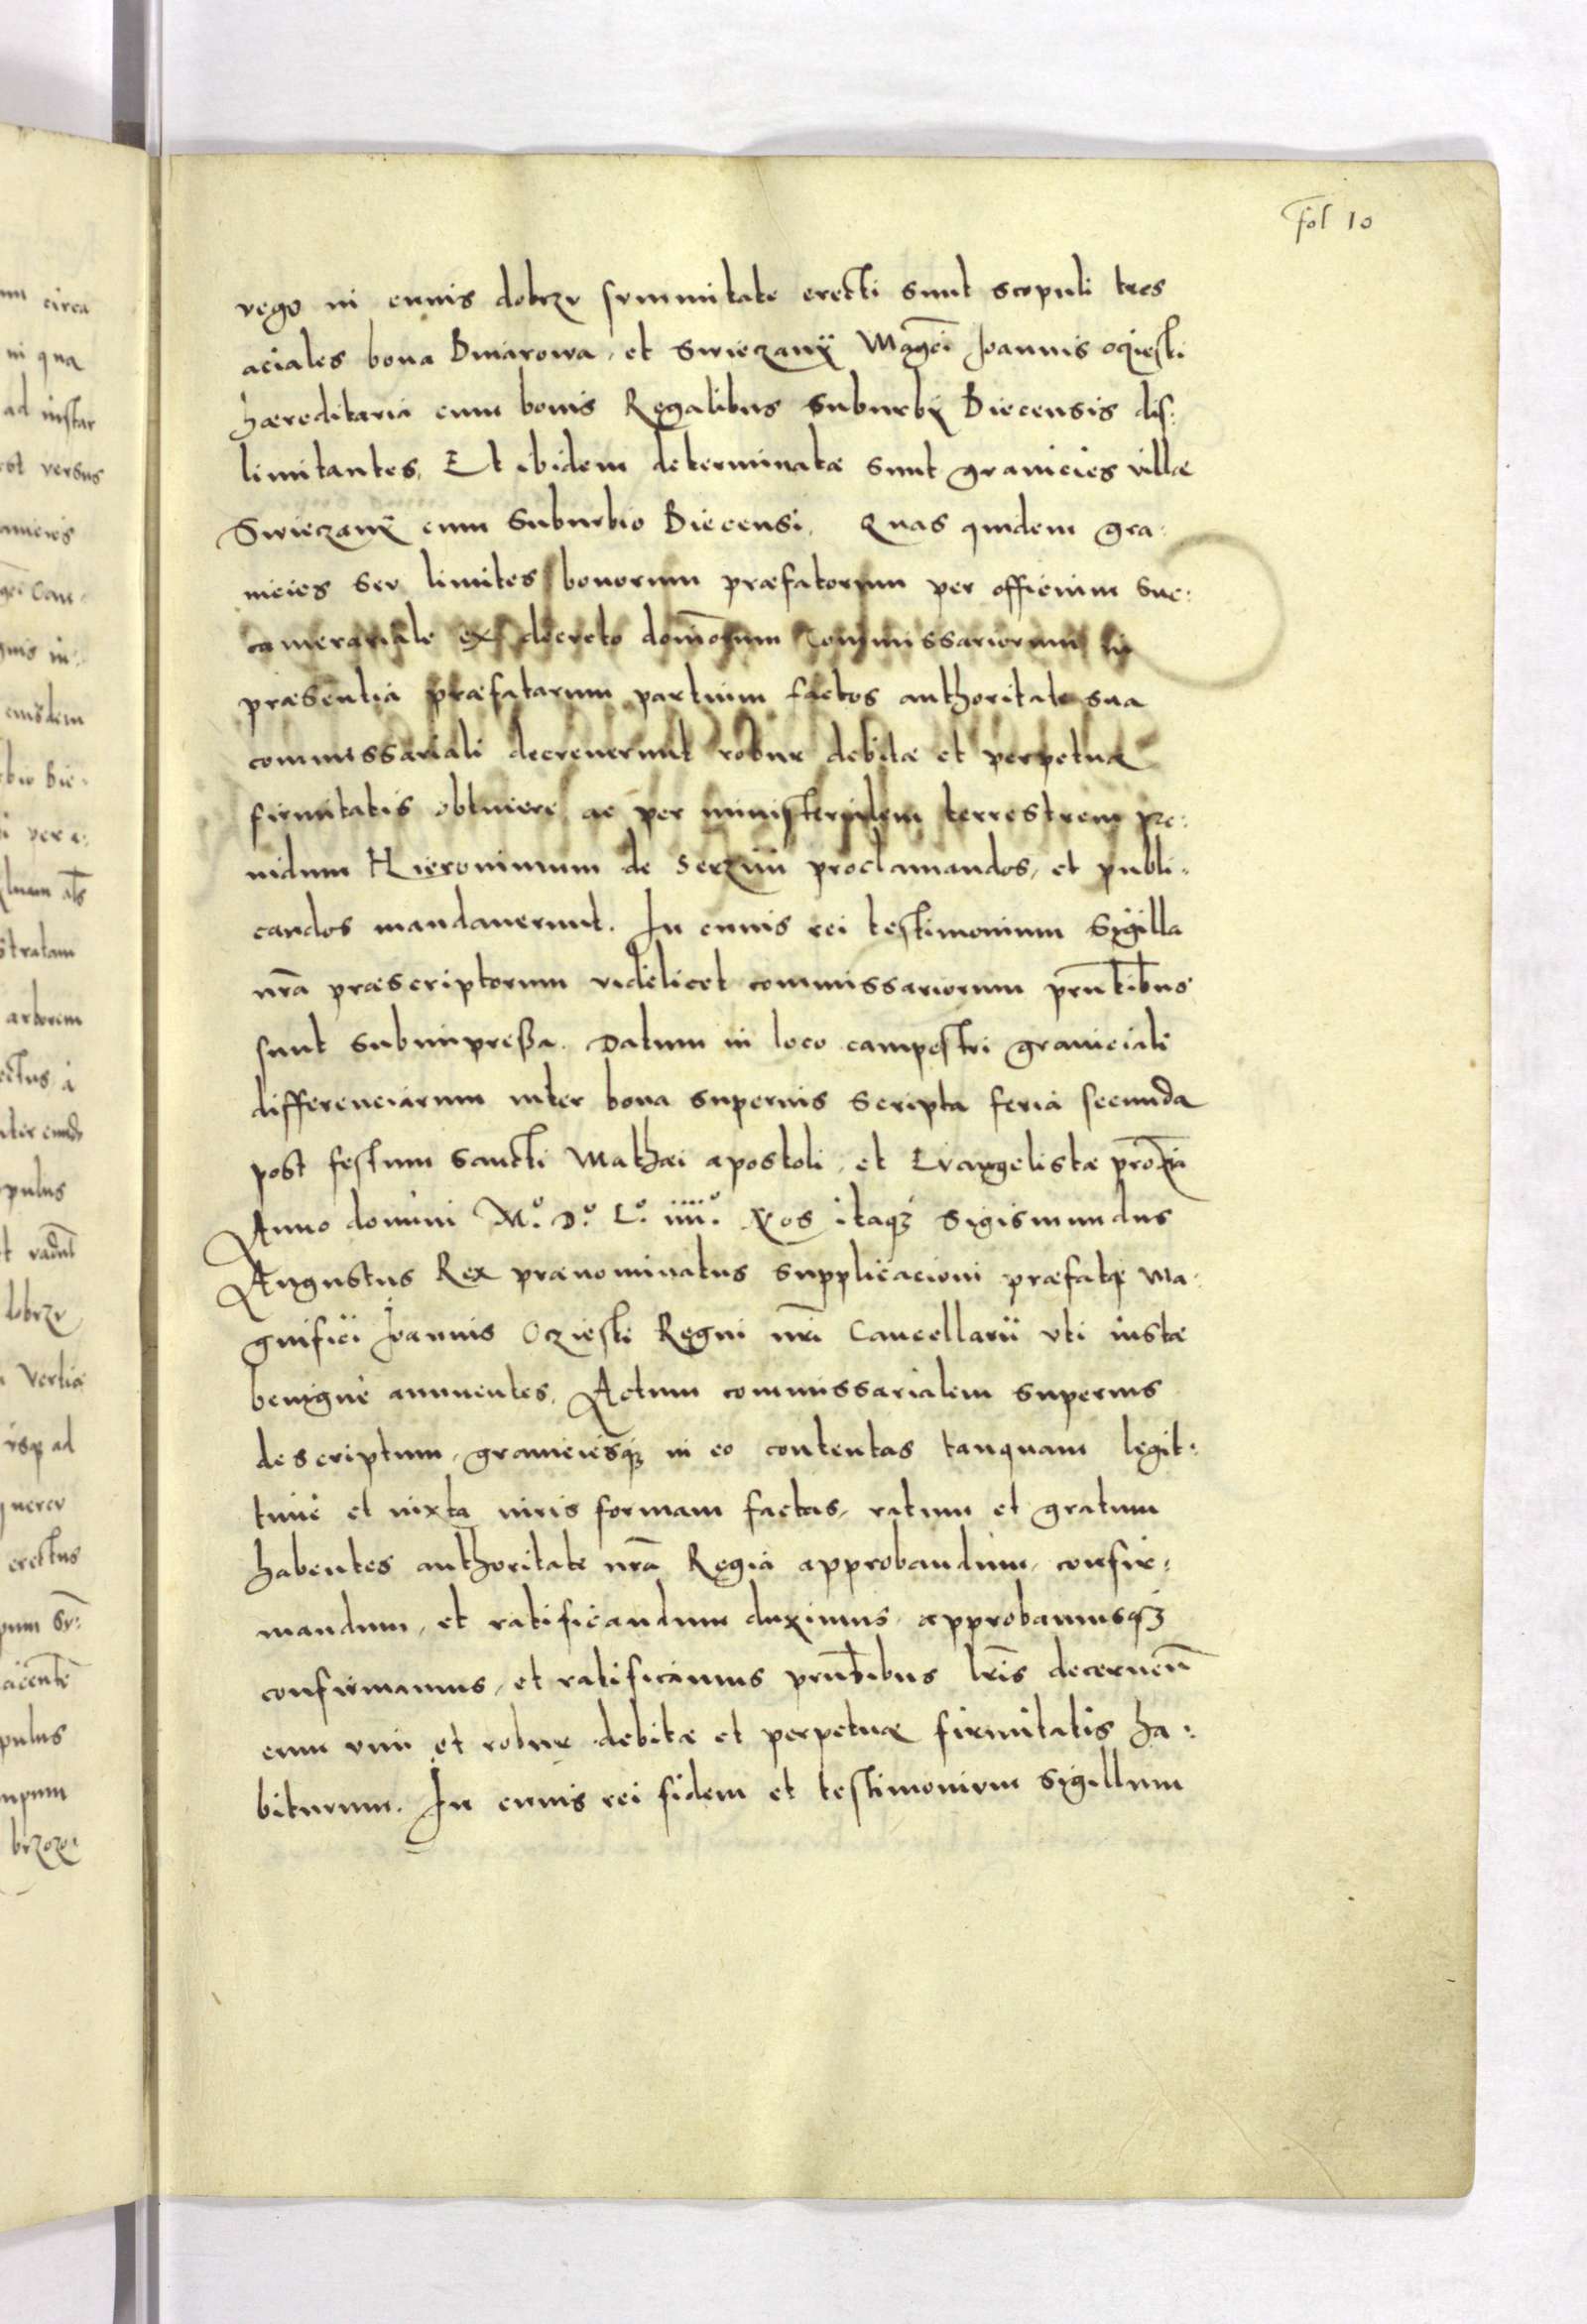 Fol 10
vego in cuius dobrzv svmmitate erecti sunt scopuli tres
aciales bona Binarowa, et Swieczanÿ Magci Joannis oczieski
hæreditaria cum bonis Regalibus Suburbÿ Biecensis dis:
limitantes, Et ibidem determinatæ sunt granicies villæ
Swieczanÿ cum Suburbio Biecensi, Quas quidem gra:
nicies Sev limites bonorum præfatorum per officium Suc:
camerariale ex decreto domorum Commissariorum in
præsentia præfatarum partium factos authoritate sua
commissariali decreverunt robur debitæ et perpetuæ
firmitatis obtinere ac per ministerialem terrestrem pro:
uidum Hieronimum de Serzini proclamandos, et publi:
candos mandauerunt. In cuius rei testimonium Sigilla
nra præscriptorum videlicet commissariorum prntibus
sunt subimpreßa. Datum in loco campestri graniciali
differenciarum inter bona superius Scripta feria secunda
post festum Sancti Mathæi apostoli, et Evangelistæ proxia
Anno domini Mº. Dº. Lº. iiiiº. Nos itaqꝫ Sigismundus
Augustus Rex prænominatus Supplicacioni præfatę Ma:
gnifici Joannis Oczieski Regni nri Cancellarii vti iustæ
benigne annuentes, Actum commissarialem superius
descriptum, graniciesqꝫ in eo contentas tanquam legit:
time et iuxta iuris formam factas, ratum et gratum
habentes authoritate nra Regia approbandum, confir:
mandum, et ratificandum duximus, approbamusqꝫ
confirmamus, et ratificamus prntibus lris decernen
eum vim et robur debitæ et perpetuæ firmitatis ha:
biturum. In cuius rei fidem et testimonivm Sigillum